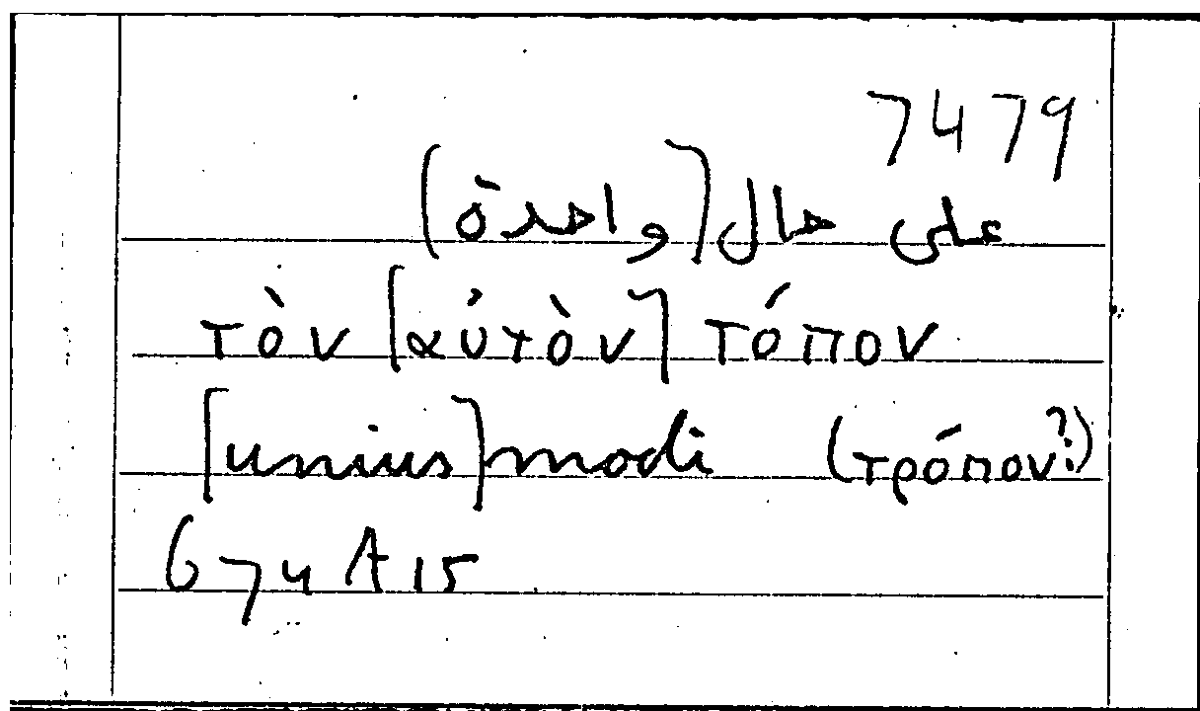 7479
على حال [واحدة]
τὸν [αὐτὸν] τόπον
[unius] modi (τρόπον?)
674 A 15